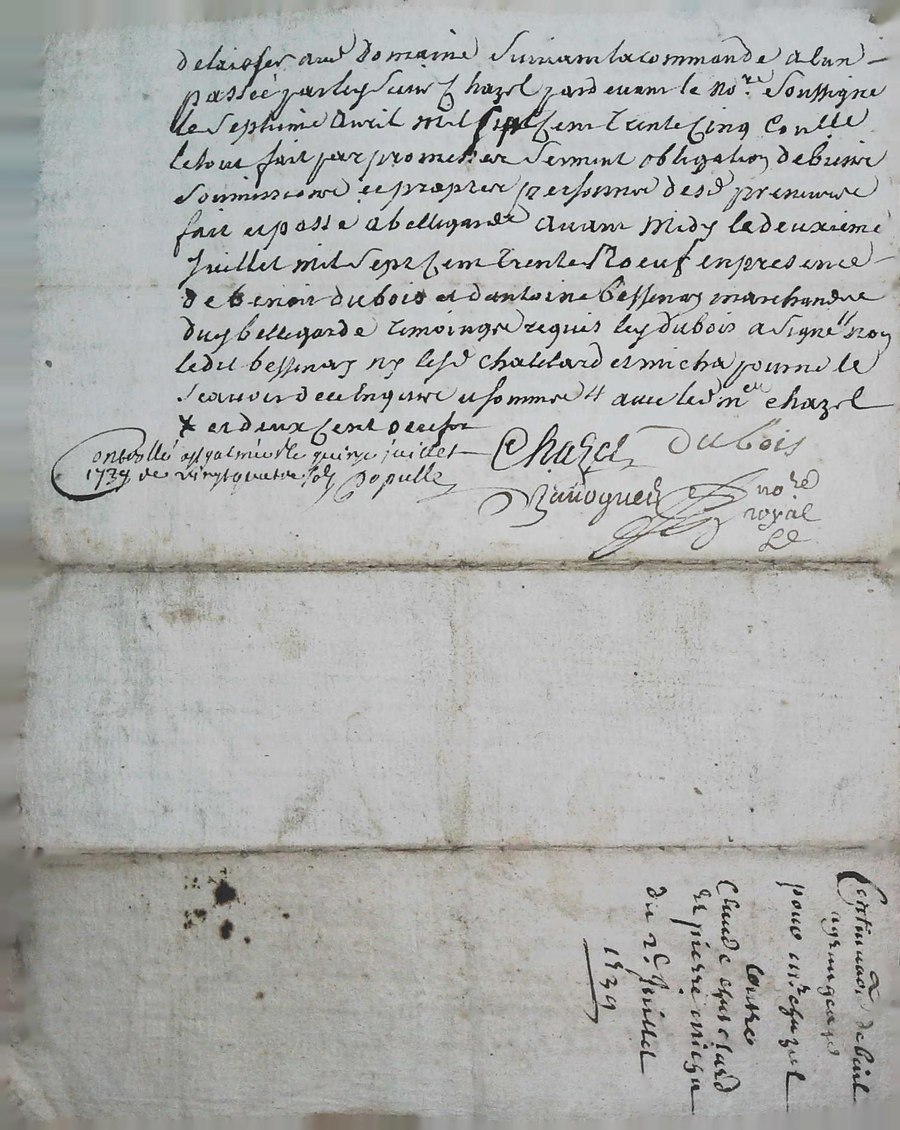 delaisser aud domaine suivant la commande a lun
passée par ley sieur Chazel pardevant le no.re soussigne
le septime avril mil sept cent trente cinq
le tout fait par promesses serment obligation de biens
soumissions et propres personne desd preneurs
fait et passé a bellegarde avant midy le deuxieme
juillet mil sept cent trente noeuf en presence
de benoit dubois et dantoine bessenay marchands
duy bellegarde temoings requis ley dubois a signé non
ledit bessenay ny lesd chatelard et micha pour ne le
scavoir de ce enquis et sommés avec led me chazel
et deux cent
Controllé a st galmier le quinze juillet
1739 Rx vingt quatre sols Populle
Chazel Dubois
no.re
royal
Continuaon de bail
a grangeage
pour mr. chazel
Contre
Claude chatelard
et pierre micha
du 2e Juillet
1739